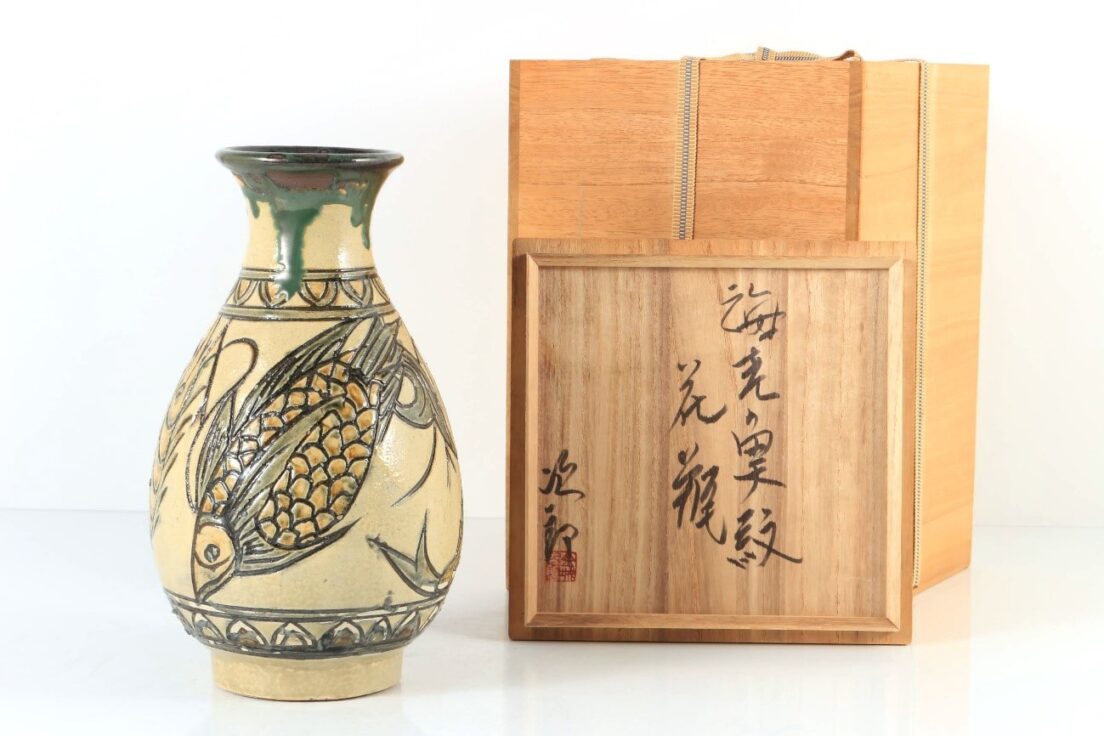 海老魚紋
花瓶
次郎